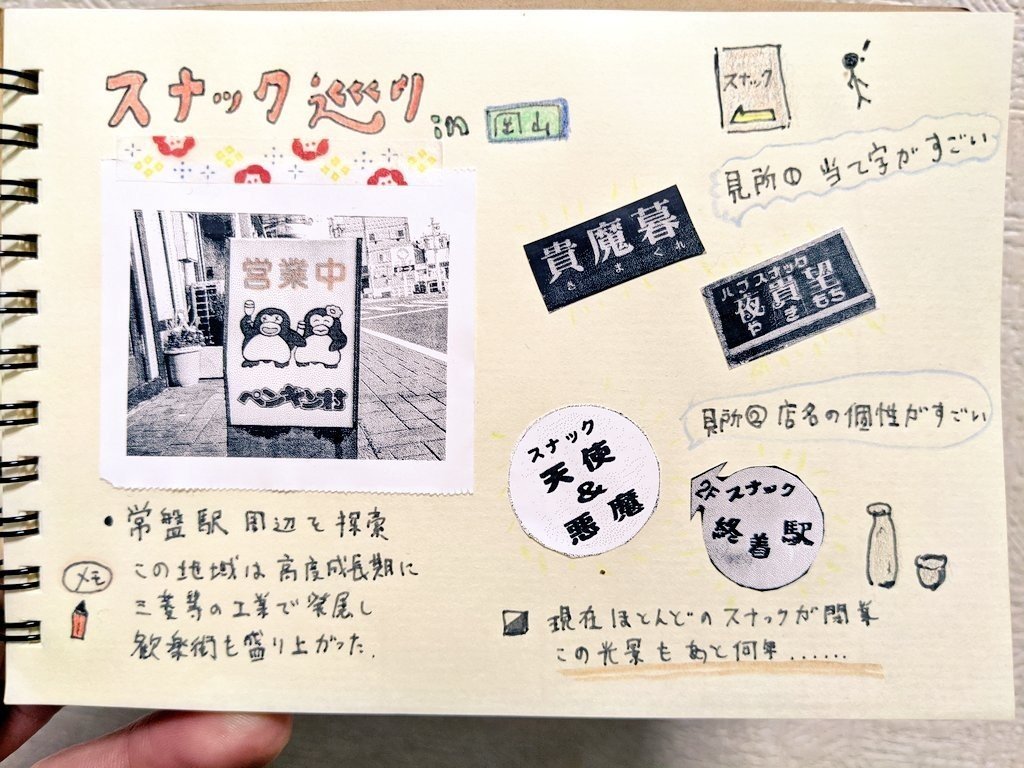 スナック巡り
in 岡山
スナック
見所① 当て字がすごい
貴魔暮
き ま ぐ れ
パブスナック
夜貴望
や き もち
営業中
ペンギン村
見所② 店名の個性がすごい
スナック
天使
&
悪魔
スナック
終着駅
・常盤駅周辺を探索
メモ
この地域は高度成長期に
三菱等の工業で発展し
歓楽街も盛り上がった.
現在ほとんどのスナックが閉業
この光景もあと何年......